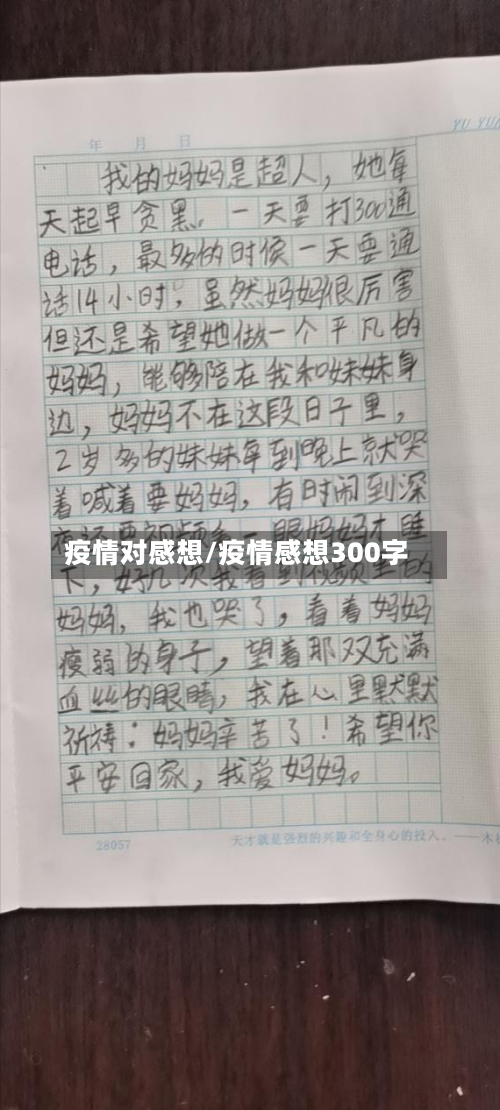 YU YU
年 月 日
我的妈妈是超人，她每
天起早贪黑。一天要打300通
电话，最多的时候一天要通
话14小时，虽然妈妈很厉害
但还是希望她做一个平凡的
妈妈，能够陪在我和妹妹身
边，妈妈不在这段日子里，
2岁多的妹妹每到晚上就哭
着喊着要妈妈，有时闹到深
疫情对感想/疫情感想300字
下，好几次我看到视频里的
妈妈，我也哭了，看着妈妈
瘦弱的身子，望着那双充满
血丝的眼睛，我在心里默默
祈祷：妈妈辛苦了！希望你
平安回家，我爱妈妈。
28057 天才就是强烈的兴趣和全身心的投入。——木